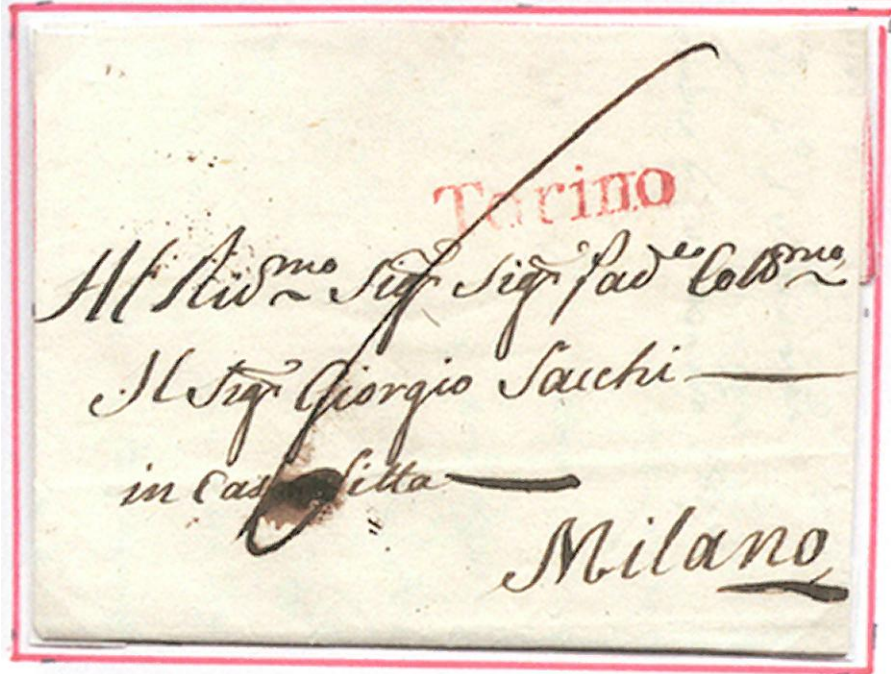 Torino
Al Sig.r Sig.r Col.mo
Il Sig.r Giorgio Sacchi
in Casa Litta
Milano